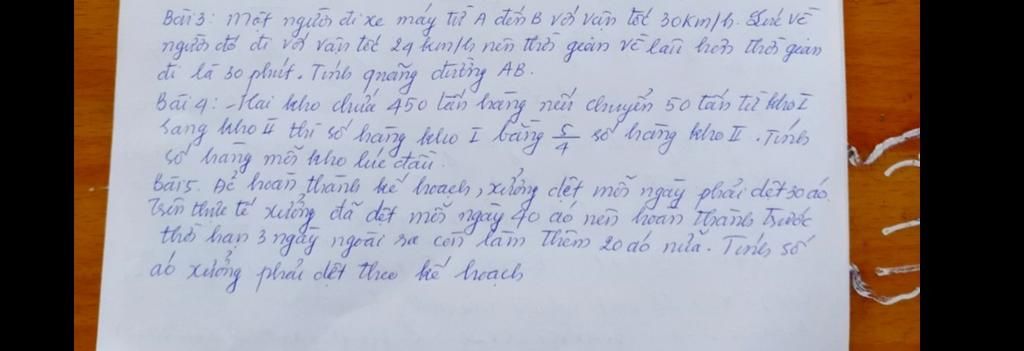 Bài 3: Một người đi xe máy từ A đến B với vận tốc 30km/h. Lúc về
người đó đi với vận tốc 24 km/h nên thời gian về lâu hơn thời gian
đi là 30 phút. Tính quãng đường AB.
Bài 4: - Hai kho chứa 450 tấn hàng nếu chuyển 50 tấn từ kho I
sang kho II thì số hàng kho I bằng 5/4 số hàng kho II. Tính
số hàng mỗi kho lúc đầu.
Bài 5. Để hoàn thành kế hoạch, xưởng dệt mỗi ngày phải dệt 30 áo.
Trên thực tế xưởng đã dệt mỗi ngày 40 áo nên hoàn thành trước
thời hạn 3 ngày ngoài ra còn làm thêm 20 áo nữa. Tính số
áo xưởng phải dệt theo kế hoạch